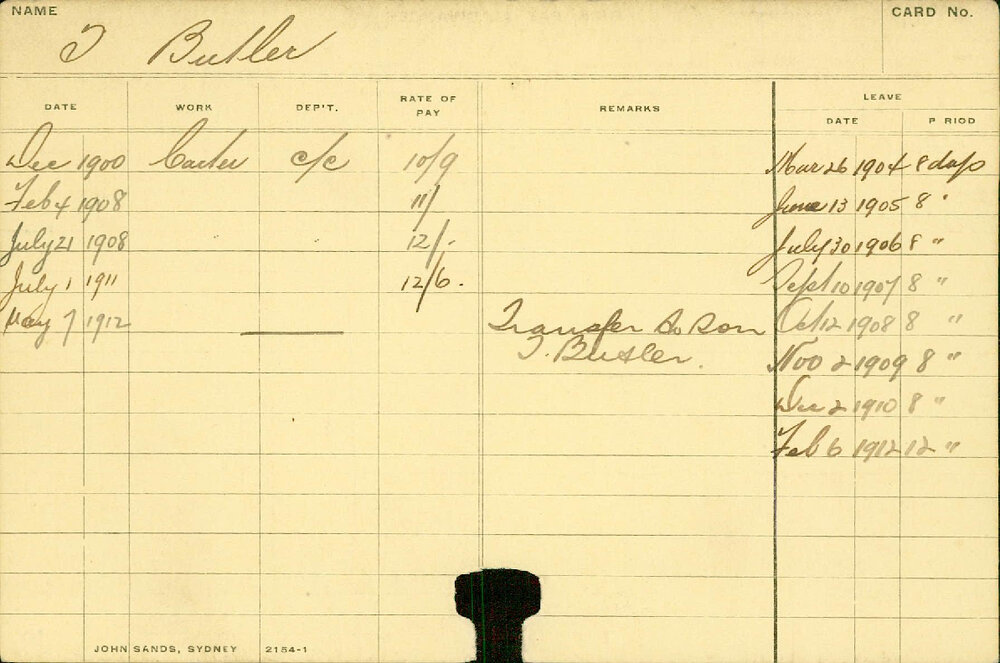 NAME
CARD No.
T Butler
DATE WORK DEP'T. RATE OF PAY REMARKS LEAVE
DATE P RIOD
Dec 1900 Carter c/c 10/9 Mar 26 1904 8 days
Feb 4 1908 11/ June 13 1905 8 "
July 21 1908 12/- July 30 1906 8 "
July 1 1911 12/6. Sept 10 1907 8 "
May 7 1912 Transfer to Son Oct 12 1908 8 "
T. Butler. Nov 2 1909 8 "
Dec 2 1910 8 "
Feb 6 1912 12 "
JOHN SANDS, SYDNEY 2154-1